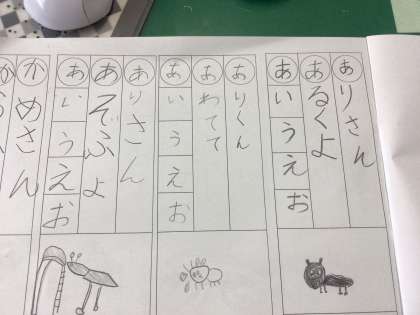 ありさん
あるくよ
あいうえお
ありくん
あわてて
あいうえお
ありさん
あそぶよ
あいうえお
かめさん